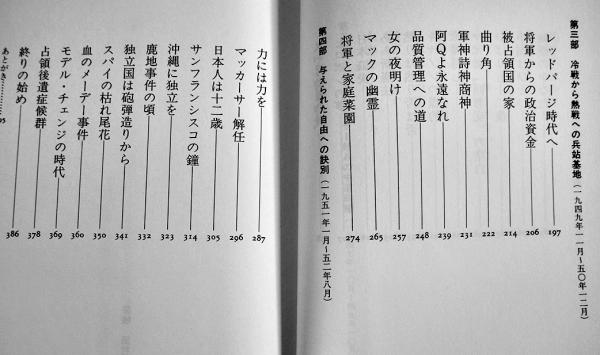 第三部　冷戦から熱戦への兵站基地（一九四九年一一月～五〇年一二月）
レッドパージ時代へ 197
将軍からの政治資金 206
被占領国の家 214
曲り角 222
軍神詩神商神 231
阿Qよ永遠なれ 239
品質管理への道 248
女の夜明け 257
マックの幽霊 265
将軍と家庭菜園 274
第四部　与えられた自由への訣別（一九五一年一月～五二年八月）
力には力を 287
マッカーサー解任 296
日本人は十二歳 305
サンフランシスコの鐘 314
沖縄に独立を 323
鹿地事件の頃 332
独立国は砲弾造りから 341
スパイの枯れ尾花 350
血のメーデー事件 360
モデル・チェンジの時代 369
占領後遺症候群 378
終りの始め 386
あとがき